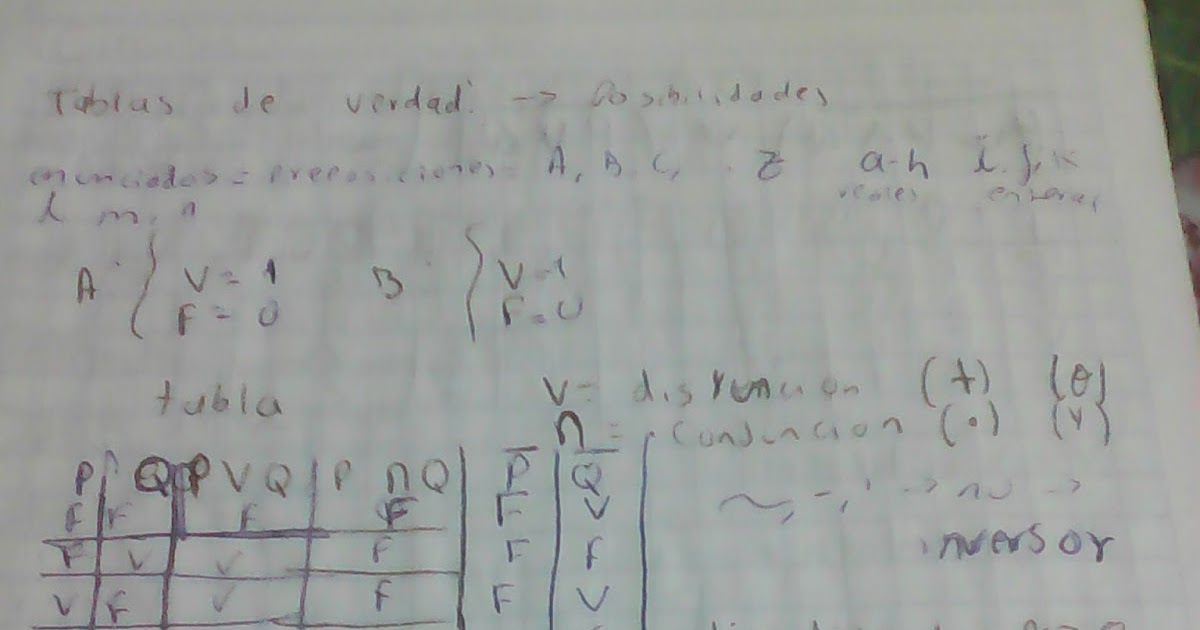 Tablas de verdad → Posibilidades
enunciados = preposiciones = A, B, C, .. Z a-h i, j, k
l m, n reales enteras
A { V = 1 B { V = 1
F = 0 F = 0
tabla V = disyuncion (+) (θ)
n = conjuncion (•) (y)
P Q P V Q P n Q P̅ Q̅
F F F F F V ~, -, ' → no →
F V V F F F inversor
V F V F F V